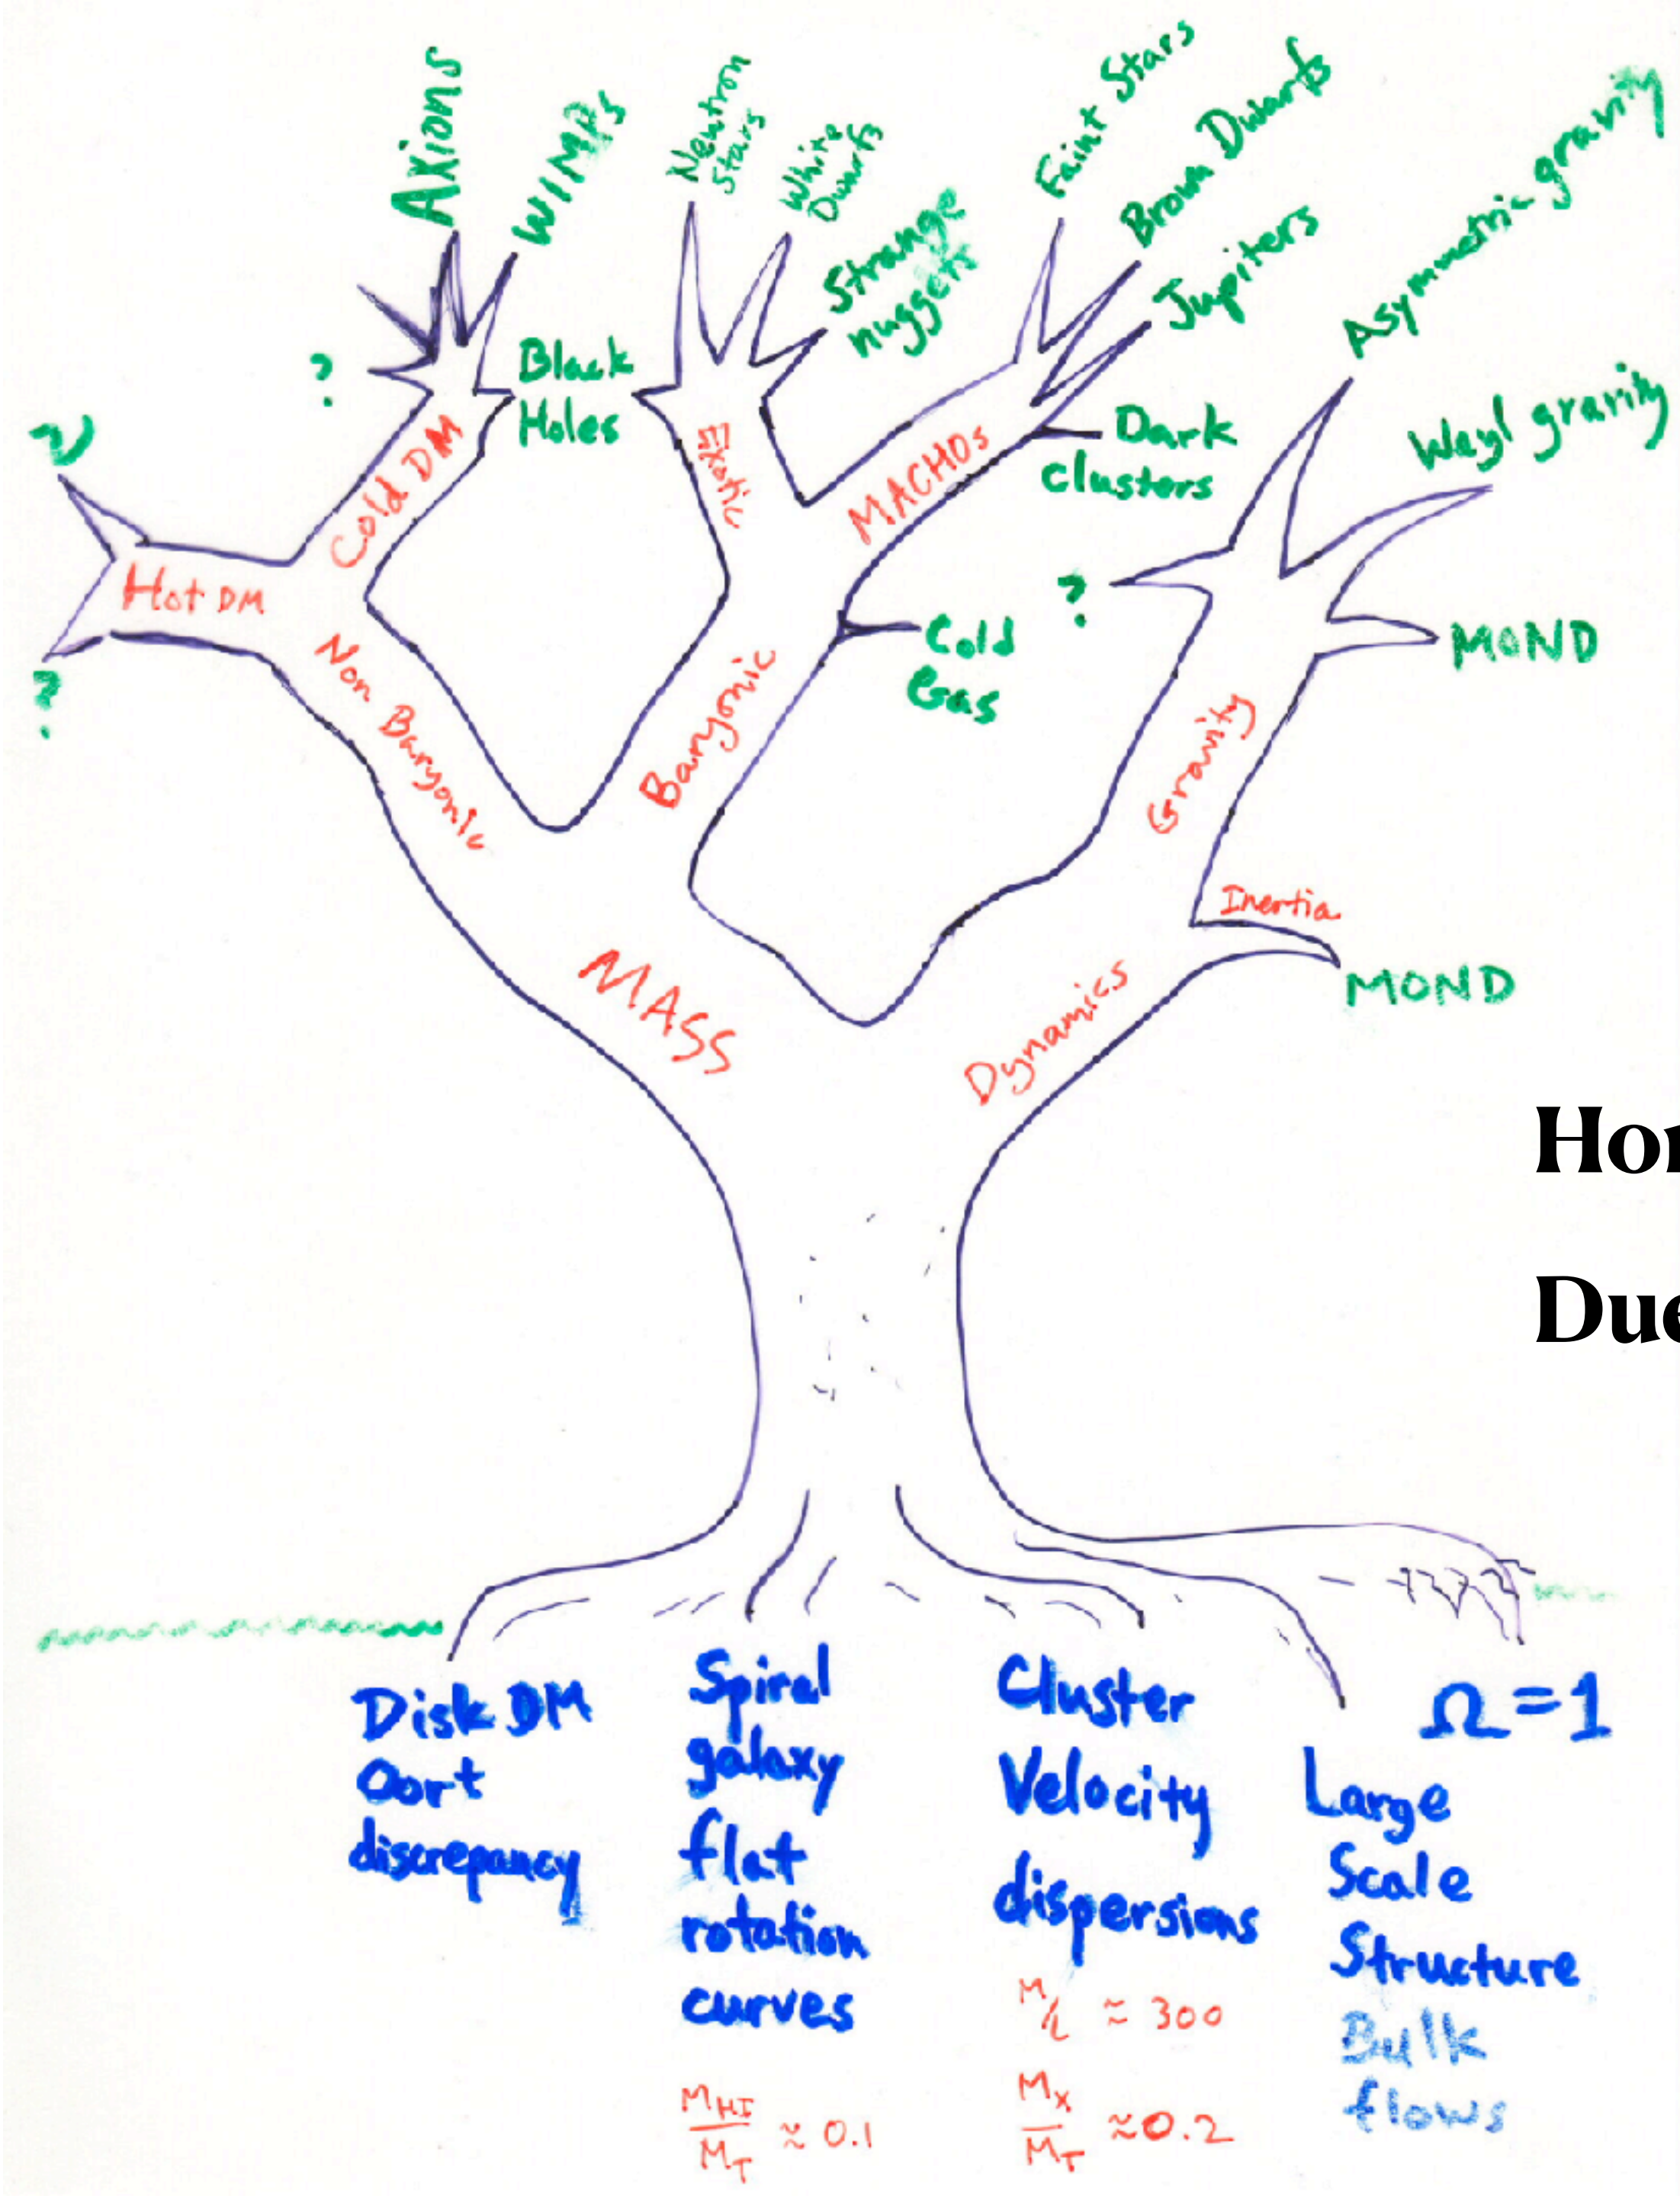 Axions
WIMPs
Neutron
Stars
White
Dwarfs
Strange
nuggets
Faint Stars
Brown Dwarfs
Jupiters
Asymmetric gravity
Weyl gravity
?
Black
Holes
ν
Cold DM
Exotic
MACHOs
Dark
clusters
Hot DM
?
?
Cold
Gas
MOND
Non Baryonic
Baryonic
Gravity
Inertia
MOND
MASS
Dynamics
Hor
Due
Disk DM
Oort
discrepancy
Spiral
galaxy
flat
rotation
curves
M_HI/M_T ≈ 0.1
Cluster
Velocity
dispersions
M/L ≈ 300
M_X/M_T ≈ 0.2
Ω = 1
Large
Scale
Structure
Bulk
flows